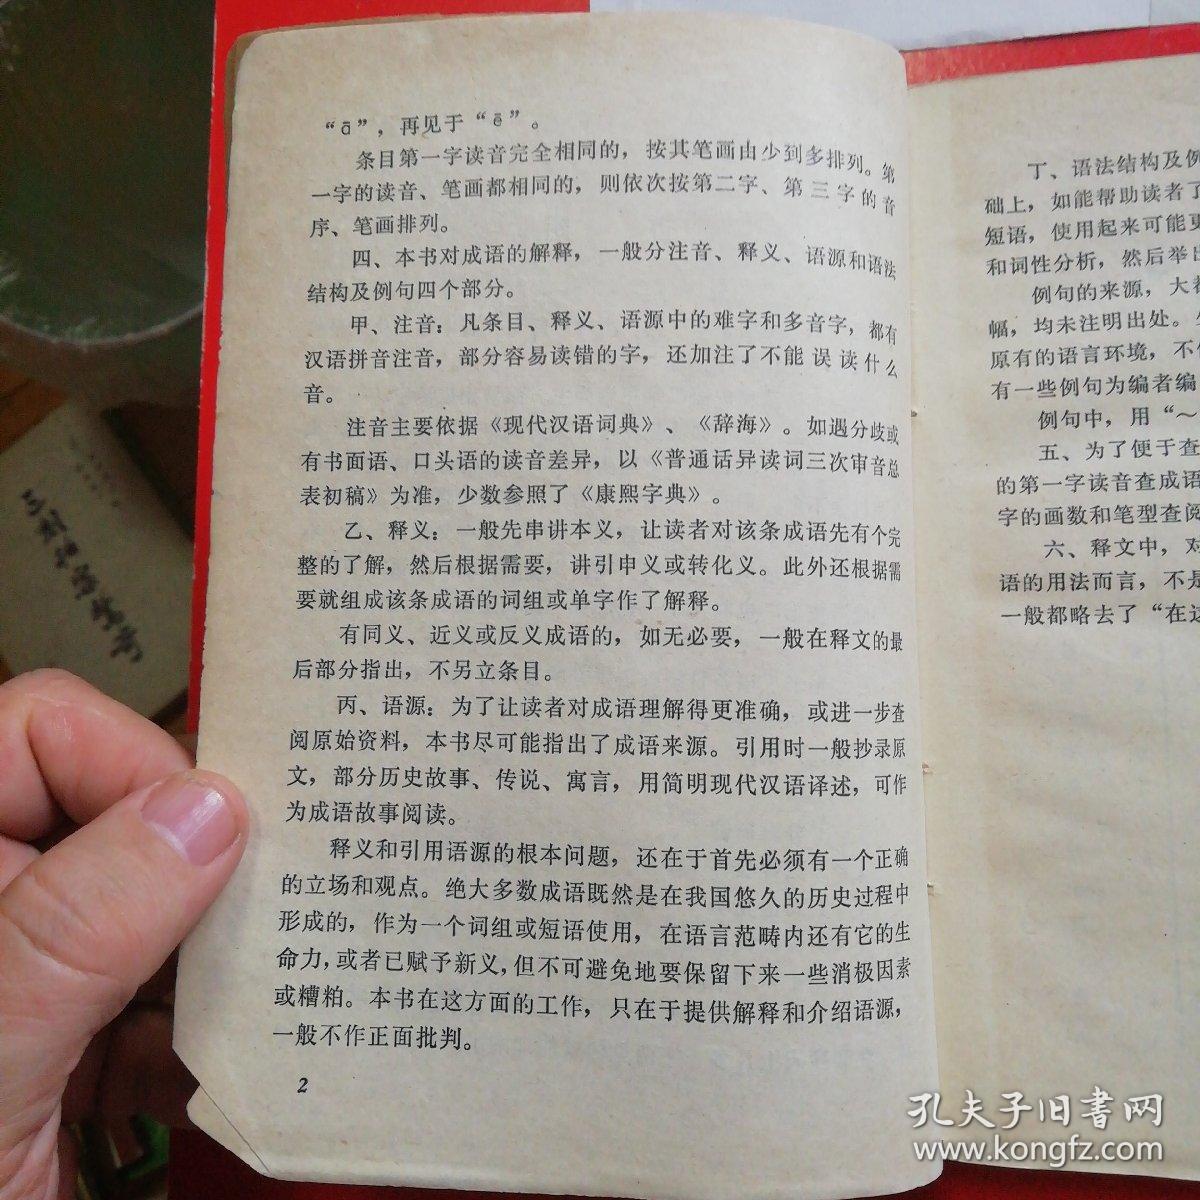 “ā”，再见于“ē”。
条目第一字读音完全相同的，按其笔画由少到多排列。第
一字的读音、笔画都相同的，则依次按第二字、第三字的音
序、笔画排列。
四、本书对成语的解释，一般分注音、释义、语源和语法
结构及例句四个部分。
甲、注音：凡条目、释义、语源中的难字和多音字，都有
汉语拼音注音，部分容易读错的字，还加注了不能误读什么
音。
注音主要依据《现代汉语词典》、《辞海》。如遇分歧或
有书面语、口头语的读音差异，以《普通话异读词三次审音总
表初稿》为准，少数参照了《康熙字典》。
乙、释义：一般先串讲本义，让读者对该条成语先有个完
整的了解，然后根据需要，讲引申义或转化义。此外还根据需
要就组成该条成语的词组或单字作了解释。
有同义、近义或反义成语的，如无必要，一般在释文的最
后部分指出，不另立条目。
丙、语源：为了让读者对成语理解得更准确，或进一步查
阅原始资料，本书尽可能指出了成语来源。引用时一般抄录原
文，部分历史故事、传说、寓言，用简明现代汉语译述，可作
为成语故事阅读。
释义和引用语源的根本问题，还在于首先必须有一个正确
的立场和观点。绝大多数成语既然是在我国悠久的历史过程中
形成的，作为一个词组或短语使用，在语言范畴内还有它的生
命力，或者已赋予新义，但不可避免地要保留下来一些消极因素
或糟粕。本书在这方面的工作，只在于提供解释和介绍语源，
一般不作正面批判。
2
丁、语法结构及例
础上，如能帮助读者了
短语，使用起来可能更
和词性分析，然后举出
例句的来源，大都
幅，均未注明出处。
原有的语言环境，不
有一些例句为编者编
例句中，用“～
五、为了便于查
的第一字读音查成语
字的画数和笔型查阅
六、释文中，对
语的用法而言，不是
一般都略去了“在这
孔夫子旧书网
www.kongfz.com